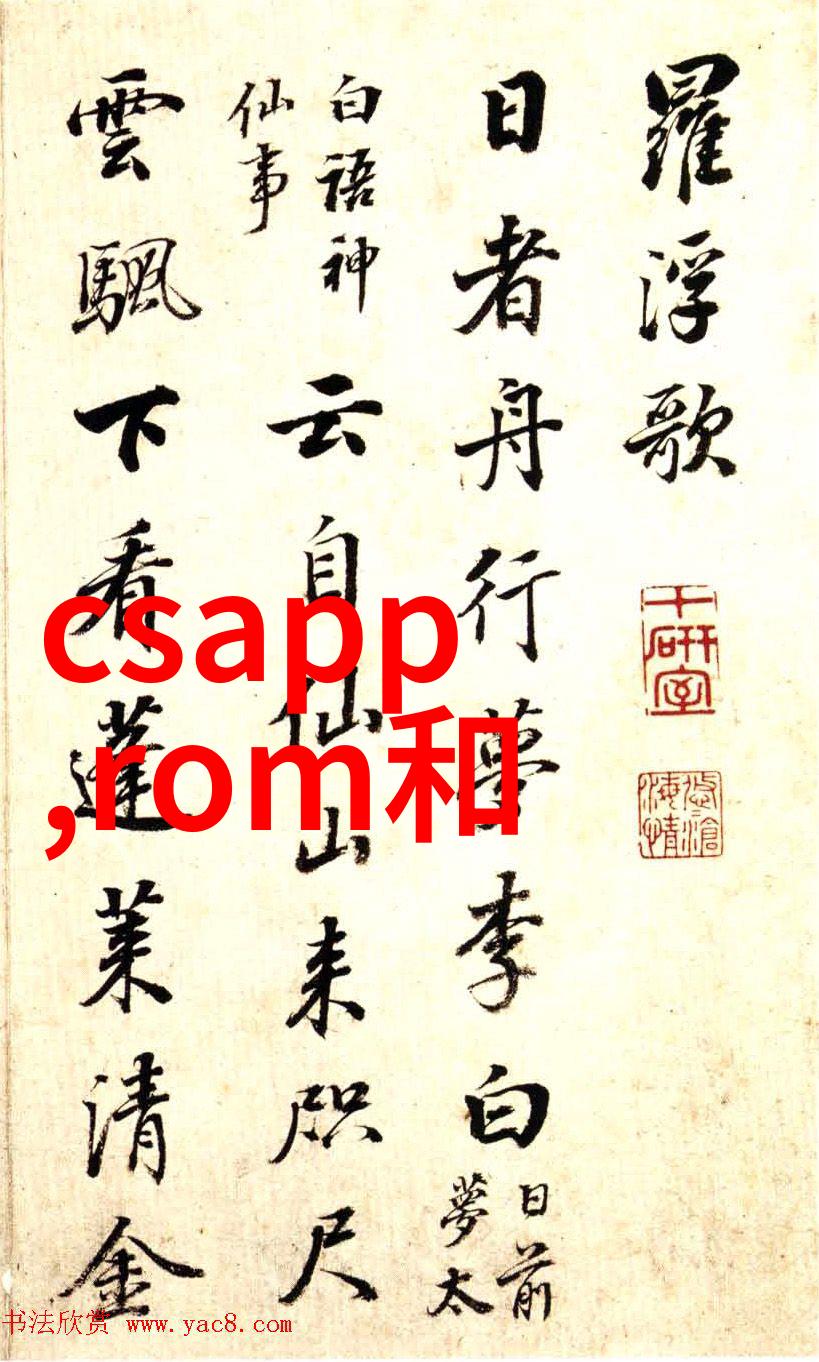 羅浮歌
日者舟行夢李白日前
夢太
白語神
仙事云自仙山来咫尺
雲颿下看蓬莱清金
千研室
csapp
,rom和
书法欣赏 www.yac8.com